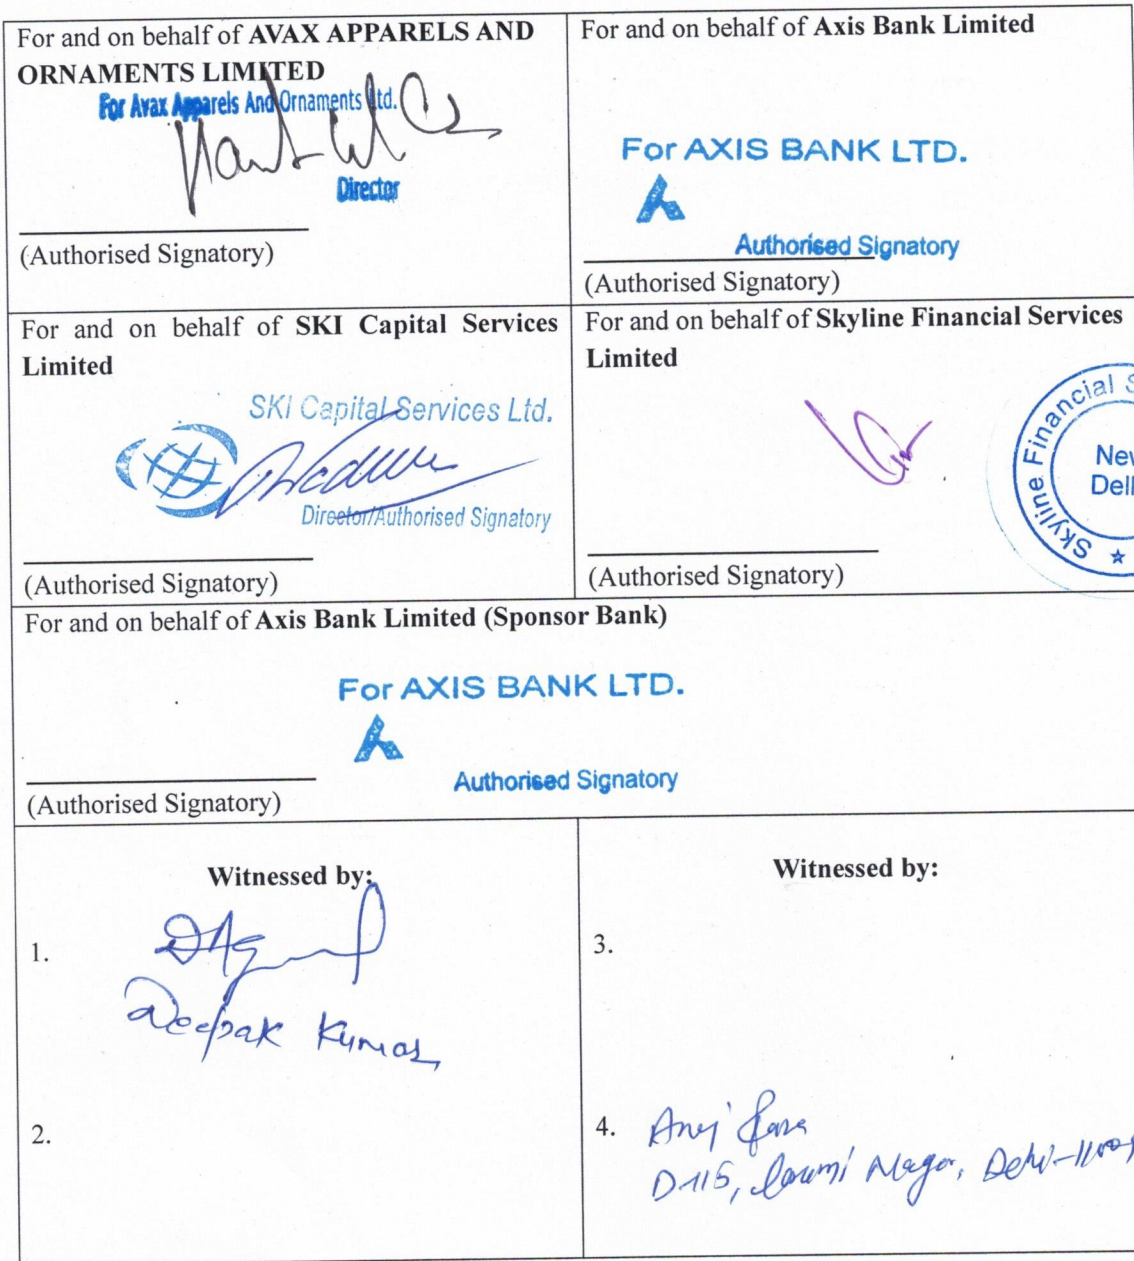 For and on behalf of AVAX APPARELS AND
ORNAMENTS LIMITED
For Avax Apparels And Ornaments Ltd.
Director
(Authorised Signatory)
For and on behalf of Axis Bank Limited
For AXIS BANK LTD.
Authorised Signatory
(Authorised Signatory)
For and on behalf of SKI Capital Services
Limited
SKI Capital Services Ltd.
Director/Authorised Signatory
(Authorised Signatory)
For and on behalf of Skyline Financial Services
Limited
Skyline Financial S
New
Del
(Authorised Signatory)
For and on behalf of Axis Bank Limited (Sponsor Bank)
For AXIS BANK LTD.
Authorised Signatory
(Authorised Signatory)
Witnessed by:
1.
Deepak Kumar
2.
Witnessed by:
3.
4.
D-115, Laxmi Nagar, Delhi-